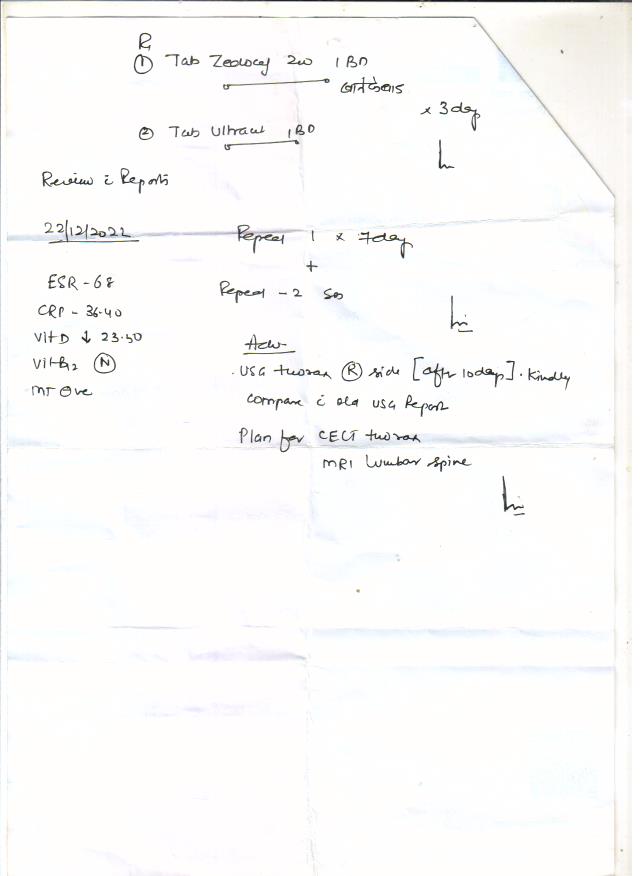 Rx
① Tab Zedocef 200 1 BD
x 3 day
② Tab Ultracet 1 BD
Review c̄ Reports
22/12/2022
Repeat 1 x 7 day
+
Repeat - 2 SOS
ESR - 68
CRP - 36.40
Vit D ↓ 23.50
Vit B12 Ⓝ
MT ⊖ve
Adv
. USG thorax Ⓡ side [after 10 days]. Kindly
compare c̄ old USG Report
Plan for CECT thorax
MRI Lumbar spine